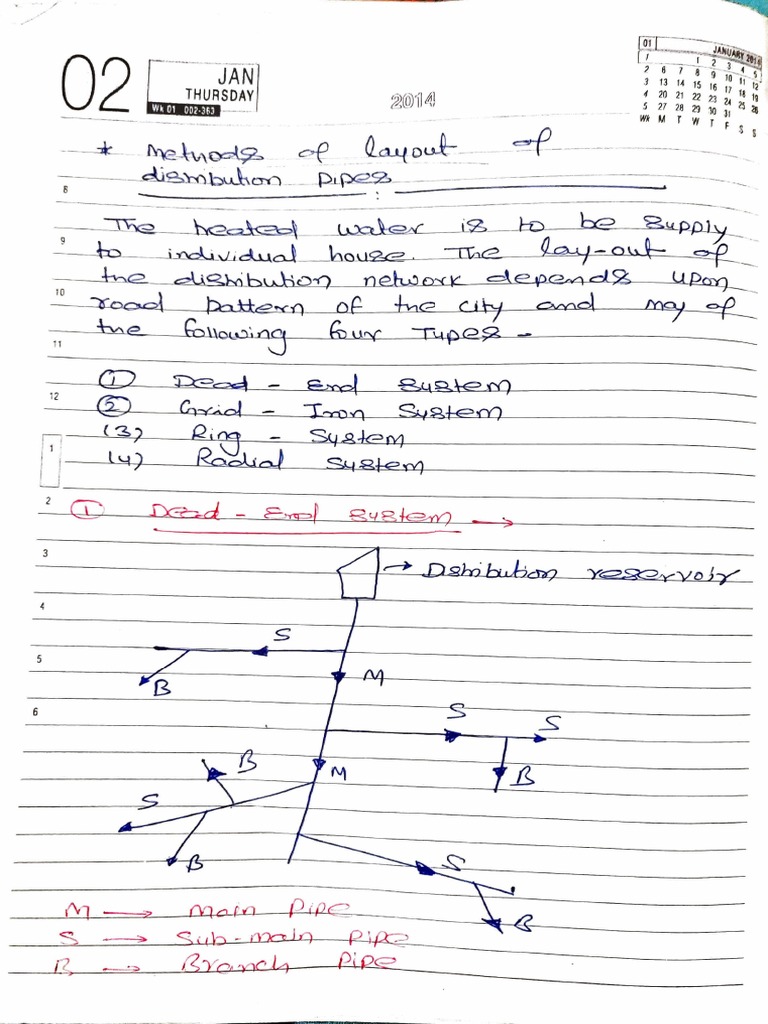 02
JAN
THURSDAY
Wk 01 002-363
2014
01 JANUARY 2014
1 1 2 3 4 5
2 6 7 8 9 10 11 12
3 13 14 15 16 17 18 19
4 20 21 22 23 24 25 26
5 27 28 29 30 31
Wk M T W T F S S
* Methods of layout of
distribution pipes
8
The treated water is to be supply
9
to individual house. The lay-out of
the distribution network depends upon
10
road pattern of the city and may of
the following four Types -
11
① Dead - End system
12
② Grid - Iron System
(3) Ring - System
1
(4) Radial system
2
① Dead - End system →
3
→ Distribution reservoir
4
S
5
M
B
6
S S
B
M
B
S
B
S
B
M → Main Pipe
S → Sub-main pipe
B → Branch pipe